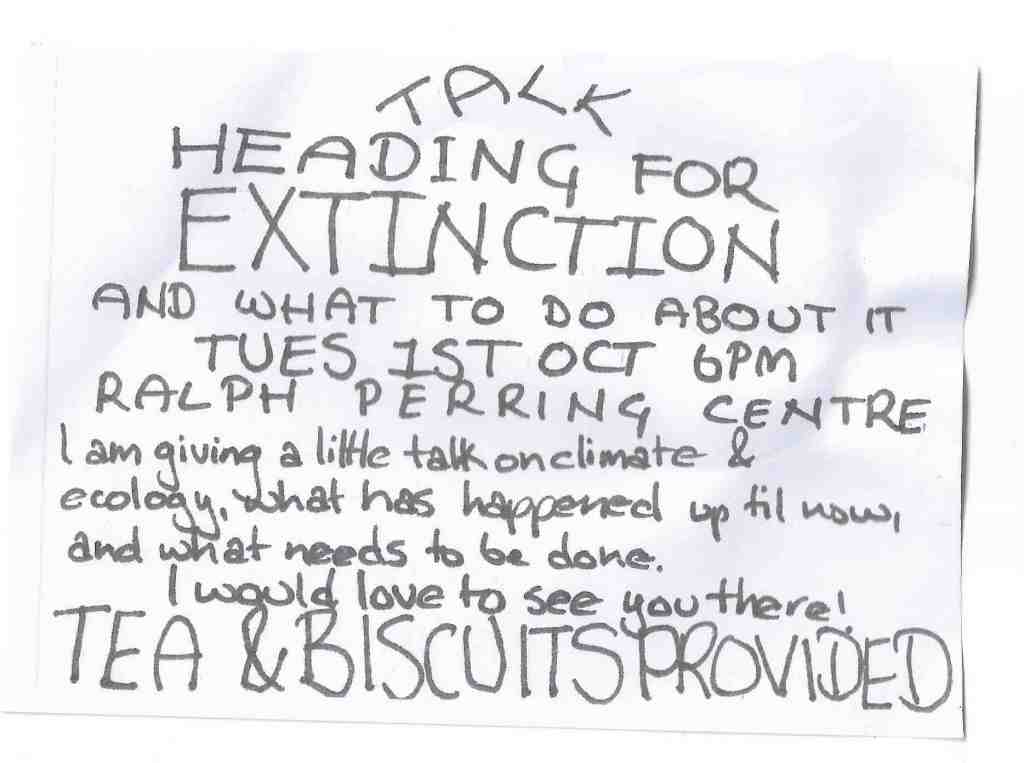 TALK
HEADING FOR
EXTINCTION
AND WHAT TO DO ABOUT IT
TUES 1ST OCT 6PM
RALPH PERRING CENTRE
I am giving a little talk on climate &
ecology, what has happened up til now,
and what needs to be done.
I would love to see you there!
TEA & BISCUITS PROVIDED